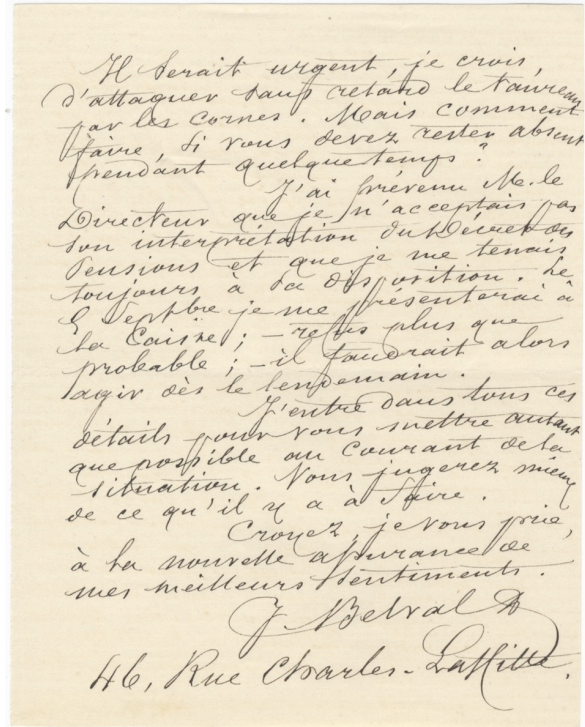 Il serait urgent, je crois,
d'attaquer sans retard le taureau
par les cornes. Mais comment
faire, si vous devez rester absent
pendant quelque temps ?
J'ai prévenu M. le
Directeur que je n'acceptais pas
son interprétation du Décret des
Pensions et que je me tenais
toujours à sa disposition. Le
Septbre je me présenterai à
la Caisse ; – refus plus que
probable ; – il faudrait alors
agir dès le lendemain.
J'entre dans tous ces
détails pour vous mettre autant
que possible au courant de la
situation. Vous jugerez mieux
de ce qu'il y a à faire.
Croyez, je vous prie,
à la nouvelle assurance de
mes meilleurs sentiments.
J Belval
46, Rue Charles-Laffitte.